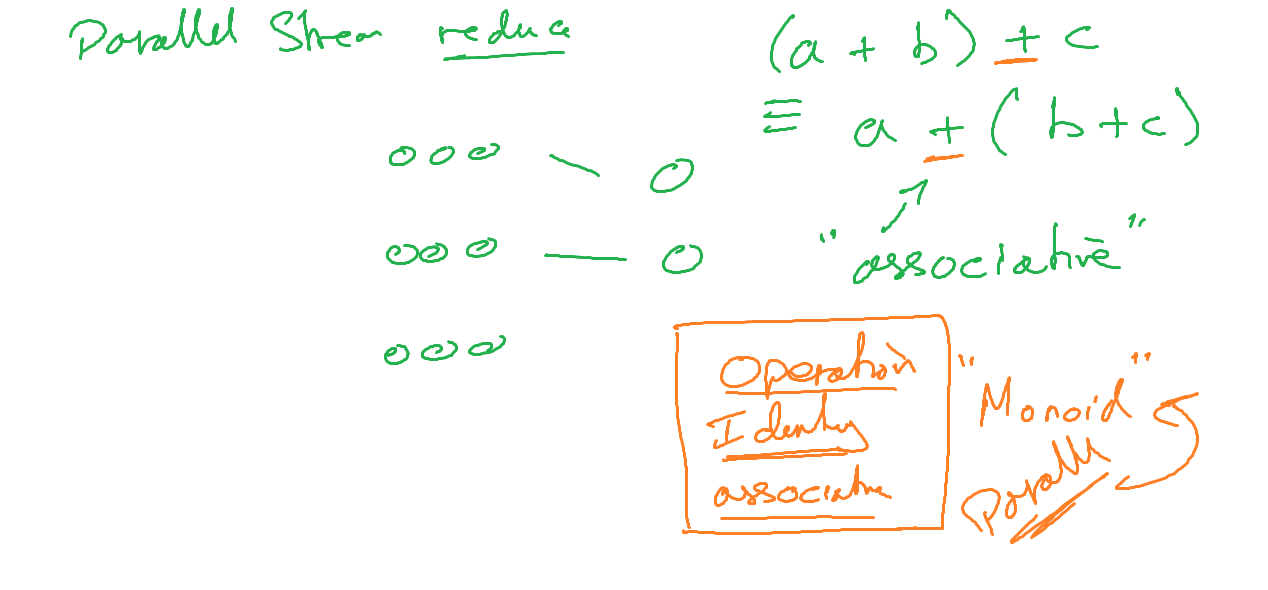 Parallel Stream reduce
(a + b) + c
≡ a + (b + c)
"associative"
Operation
Identity
associative
"Monoid"
Parallel